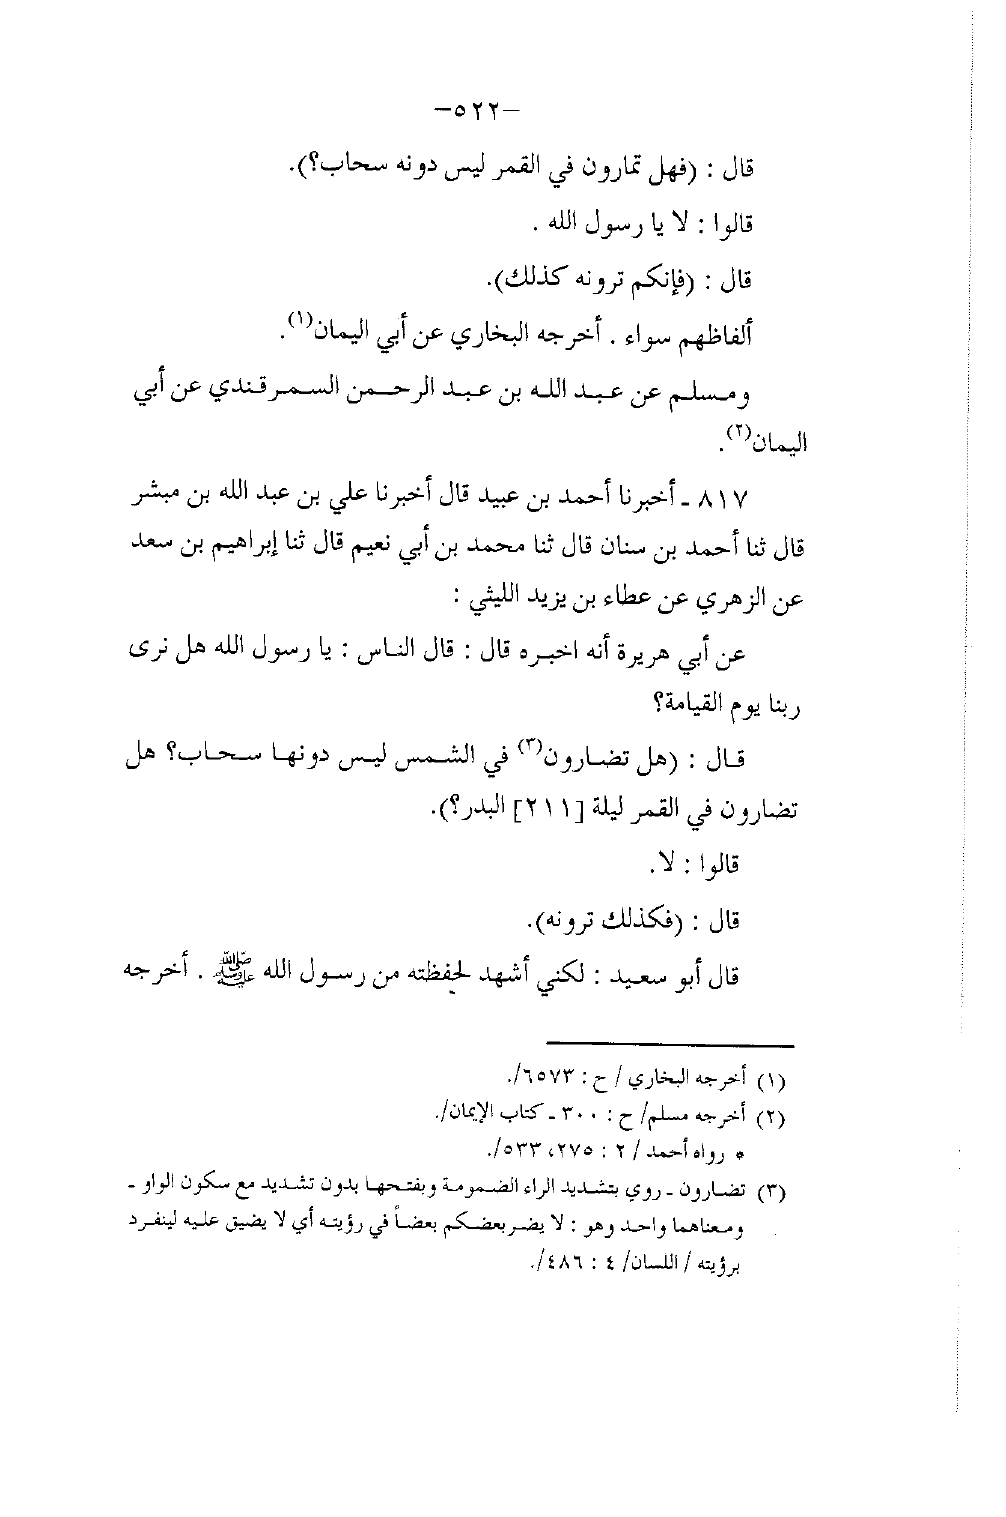 -٥٢٢-
قال : (فهل تمارون في القمر ليس دونه سحاب؟).
قالوا : لا يا رسول الله .
قال : (فإنكم ترونه كذلك).
ألفاظهم سواء . أخرجه البخاري عن أبي اليمان(١).
ومسلم عن عبد الله بن عبد الرحمن السمرقندي عن أبي
اليمان(٢).
٨١٧ ـ أخبرنا أحمد بن عبيد قال أخبرنا علي بن عبد الله بن مبشر
قال ثنا أحمد بن سنان قال ثنا محمد بن أبي نعيم قال ثنا إبراهيم بن سعد
عن الزهري عن عطاء بن يزيد الليثي :
عن أبي هريرة أنه اخبره قال : قال الناس : يا رسول الله هل نرى
ربنا يوم القيامة؟
قال : (هل تضارون(٣) في الشمس ليس دونها سحاب؟ هل
تضارون في القمر ليلة [٢١١] البدر؟).
قالوا : لا.
قال : (فكذلك ترونه).
قال أبو سعيد : لكني أشهد لحفظته من رسول الله ﷺ . أخرجه
(١) أخرجه البخاري / ح : ٦٥٧٣/.
(٢) أخرجه مسلم/ ح : ٣٠٠ ـ كتاب الإيمان/.
* رواه أحمد / ٢ : ٢٧٥، ٥٣٣/.
(٣) تضارون ـ روي بتشديد الراء الضمومة وبفتحها بدون تشديد مع سكون الواو ـ
ومعناهما واحد وهو : لا يضر بعضكم بعضاً في رؤيته أي لا يضيق عليه لينفرد
برؤيته / اللسان/ ٤ : ٤٨٦/.